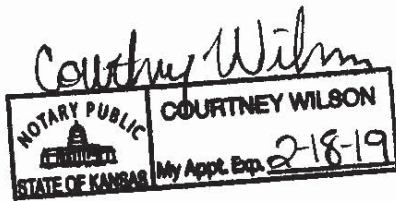 Courtney Wilson
NOTARY PUBLIC
STATE OF KANSAS
COURTNEY WILSON
My Appt. Exp. 2-18-19